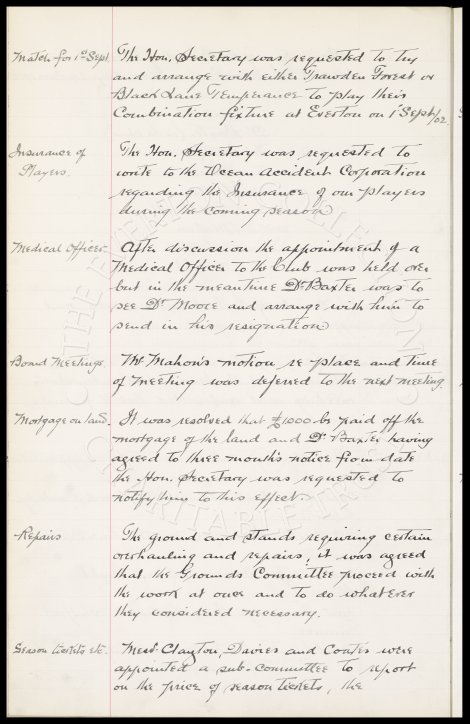 Match for 1st Sept. The Hon. Secretary was requested to try
and arrange with either Trawden Forest or
Black Lane Temperance to play their
Combination fixture at Everton on 1 Sept/02.
Insurance of The Hon. Secretary was requested to
Players. write to the Ocean Accident Corporation
regarding the Insurance of our players
during the coming season
Medical Officer After discussion the appointment of a
Medical Officer to the Club was held over
but in the meantime Dr Baxter was to
see Dr Moore and arrange with him to
send in his resignation
Board Meetings Mr Mahon's motion re place and time
of meeting was deferred to the next meeting.
Mortgage on land. It was resolved that £1000 be paid off the
mortgage of the land and Dr Baxter having
agreed to three month's notice from date
the Hon. Secretary was requested to
notify him to this effect
Repairs The ground and stands requiring certain
overhauling and repairs, it was agreed
that the Grounds Committee proceed with
the work at once and to do whatever
they considered necessary.
Season tickets etc. Messrs Clayton, Davies and Coates were
appointed a sub-committee to report
on the price of season tickets, the